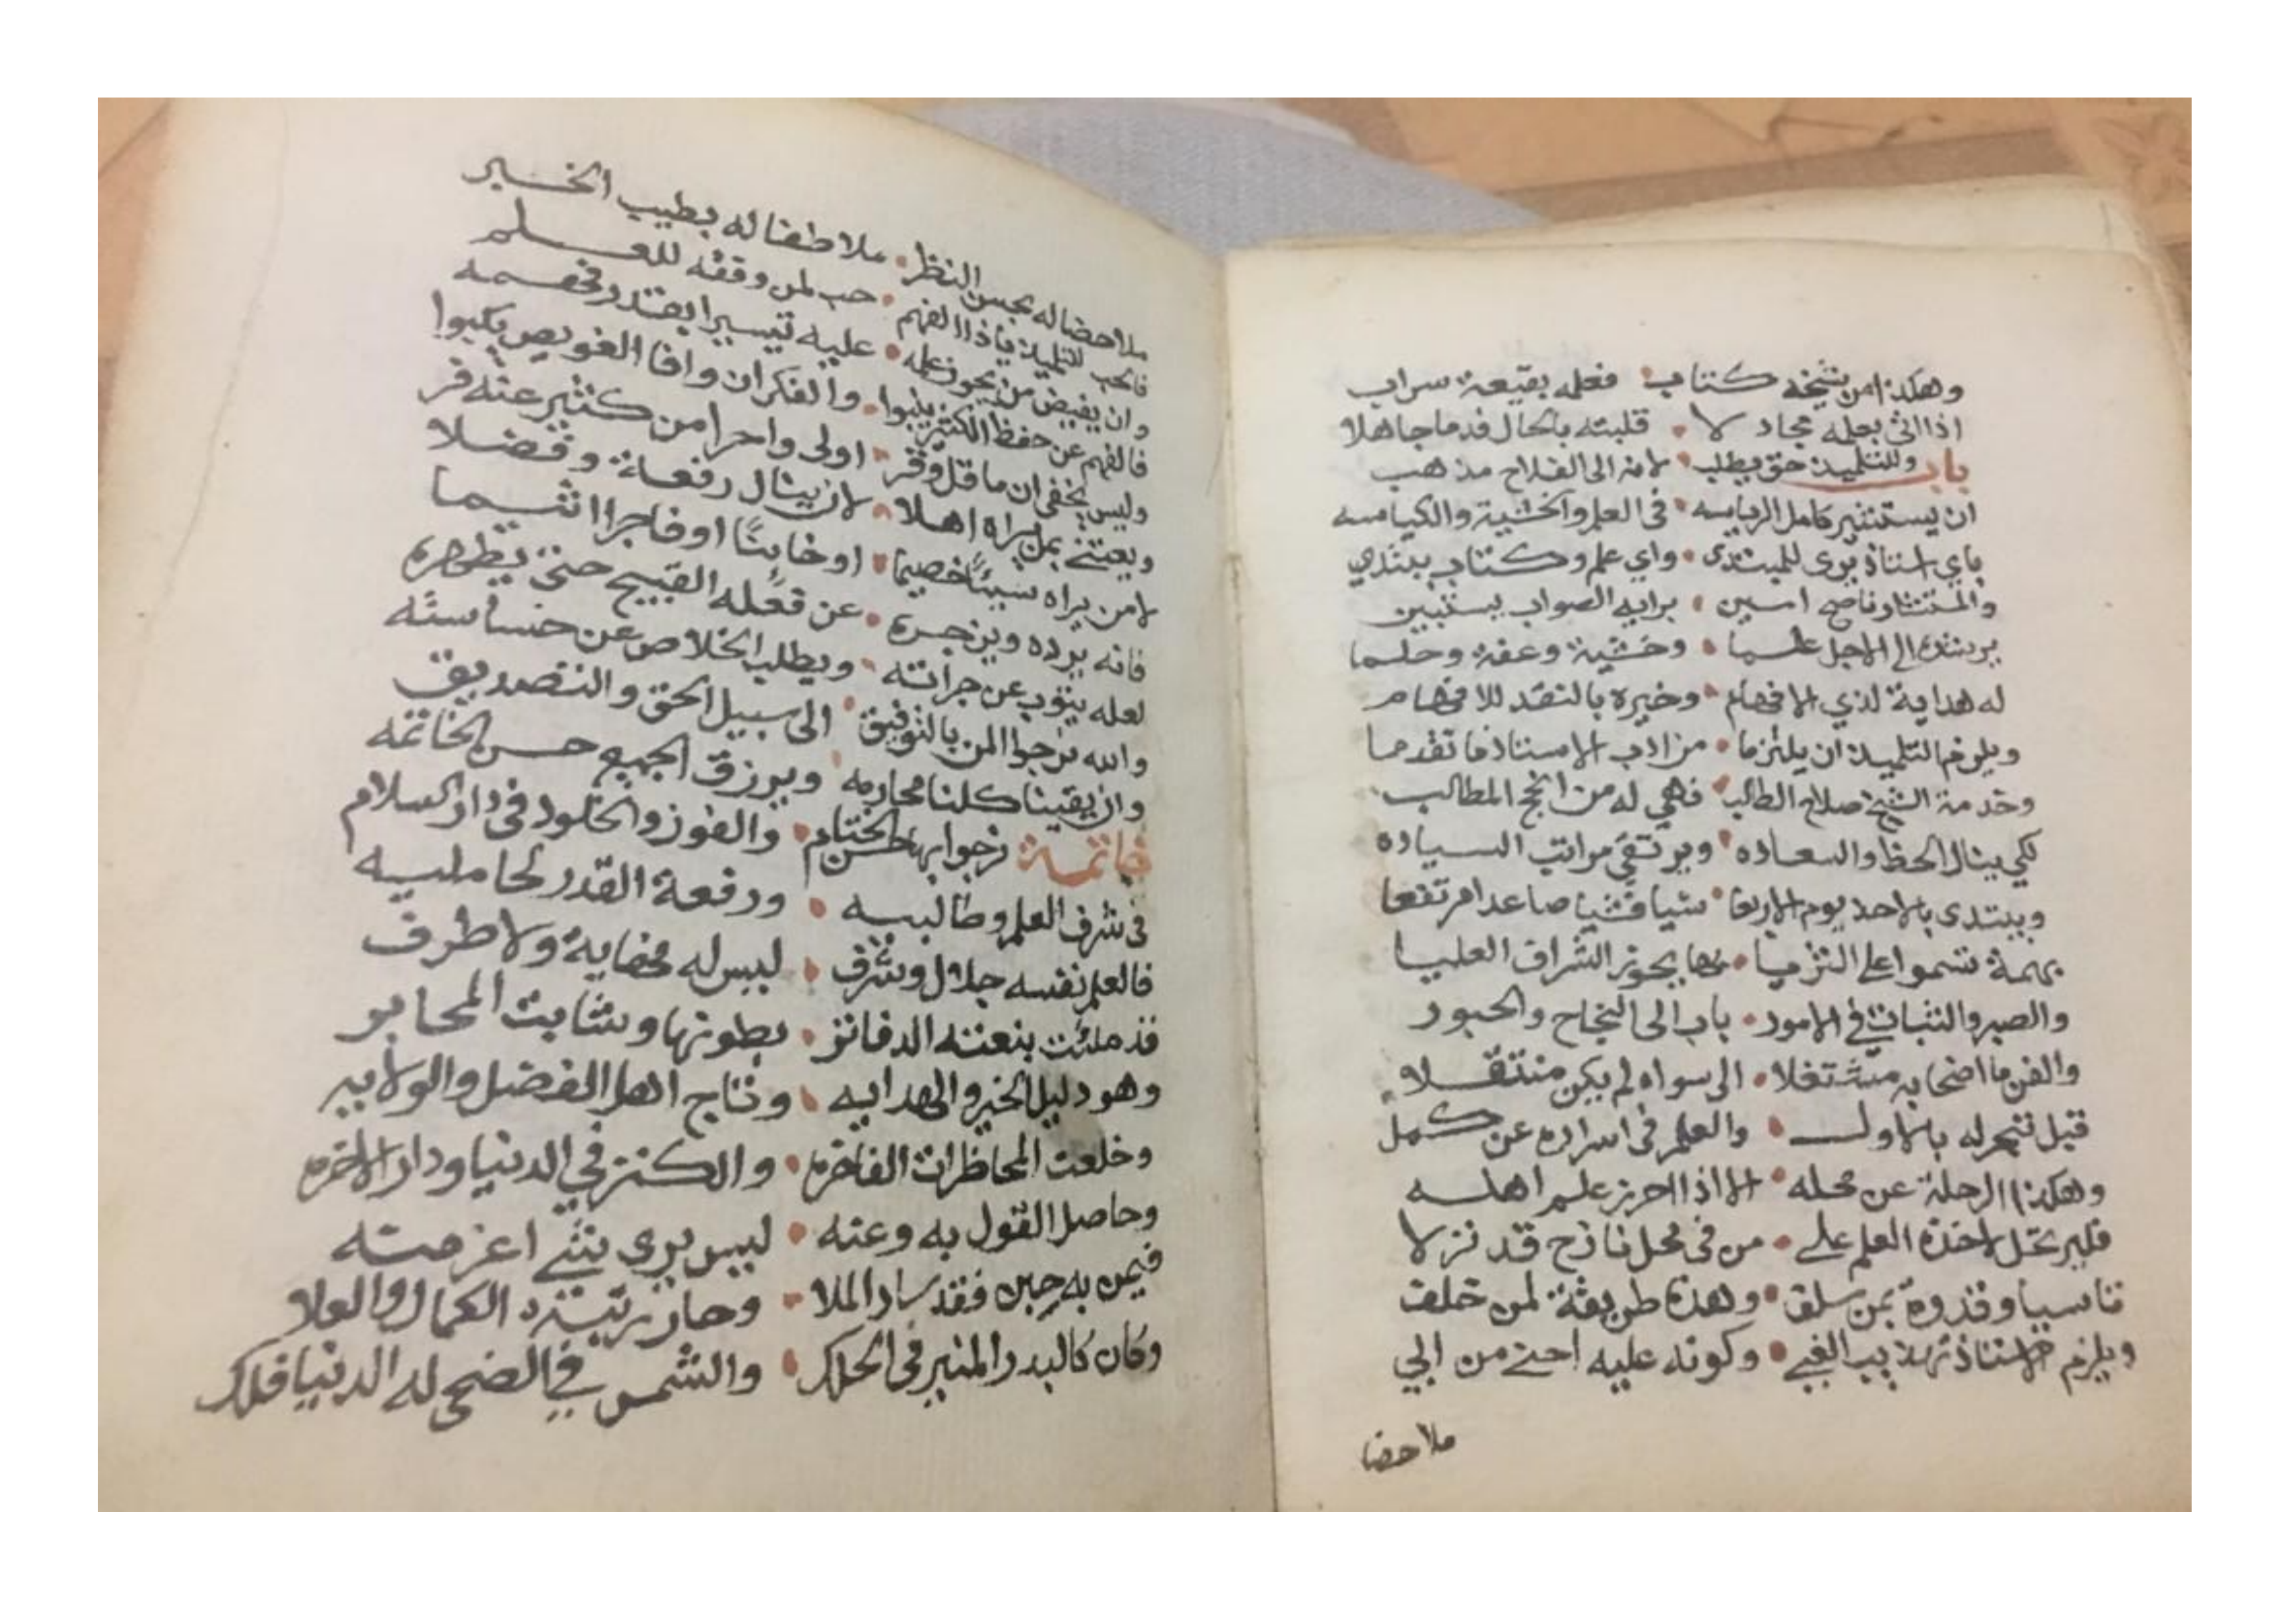 وهكذا من شيخه كتاب • فعلمه بقيعة سراب
اذا اتى بعلمه مجادلا • قلبته بالحال فدما جاهلا
باب وللتلميذ حق يطلب • لانه الى الفلاح مذهب
ان يستشير كامل الرياسه • في العلم والخشية والكياسه
باي استاذ يرى للمبتدى • واي علم وكتاب يبتدي
والمستشار ناصح امين • برايه الصواب يستبين
يرشده الى الاجل علما • وخشية وعفة وحلما
له هداية لذي الافهام • وخيره بالنقد للافهام
ويلزم التلميذ ان يلتزما • من ادب الاستاذ ما تقدما
وخدمة الشيخ صلاح الطالب • فهي له من انجح المطالب
لكي ينال الحظ والسعاده • ويرتقي مراتب السياده
ويبتدى بالاخذ يوم الاربعا • شيا فشيا صاعدا مرتفعا
بهمة تسموا على الثريا • بها يحوز الشراف العليا
والصبر والثبات في الامور • باب الى النجاح والحبور
والفن ما اضحا به مشتغلا • الى سواه لم يكن منتقلا
قبل تبحر له بالاول • والعلم في اسراره عن كمل
وهكذا الرحلة عن محله • الا اذا احرز علم اهله
فليرتحل لاخذه العلم على • من في محل نازح قد نزلا
تاسيا وقدوة بمن سلف • وهذه طريقة لمن خلف
ويلزم الاستاذ تهذيب الغبي • وكونه عليه احنى من ابي
ملاحضا
ملاحضا له بحسن النظر • ملاطفا له بطيب الخبر
فالحب للتلميذ ياذا الفهم • حب لمن وقفه للعلم
وان يفيض من بحوز علمه • عليه تيسيرا بقدر فهمه
فالفهم عن حفظ الكثير ينبوا • والفكر ان وافا الغويص يكبوا
وليس يخفى ان ما قل وقر • اولى واحرا من كثير عنه فر
ويعتنى بمن يراه اهلا • لان ينال رفعة وفضلا
لا من يراه سيئا خصيما • او خابثا او فاجرا اثيما
فانه يرده ويزجره • عن فعله القبيح حتى يطهره
لعله يتوب عن جراته • ويطلب الخلاص عن خساسته
والله نرجوا المن بالتوفيق • الى سبيل الحق والتصديق
وان يقينا كلنا محارمه • ويرزق الجميع حسن الخاتمه
خاتمة نرجوا بها حسن الختام • والفوز والخلود في دار السلام
في شرف العلم وطالبيه • ورفعة القدر لحامليه
فالعلم نفسه جلال وشرف • ليس له مخفاية ولا طرف
قد ملئت بنعته الدفاتر • بطونها وشابت المحابر
وهو دليل الخير والهدايه • وتاج اهل الفضل والولايه
وخلعت المحاظرات الفاخره • والكنز في الدنيا ودار الاخره
وحاصل القول به وعنه • ليس يرى شئ اعز منه
فيمن به حبى فقد ساد الملا • وحاز رتبة الكمال والعلا
وكان كالبدر المنير في الحلك • والشمس في الضحى له الدنيا فلك